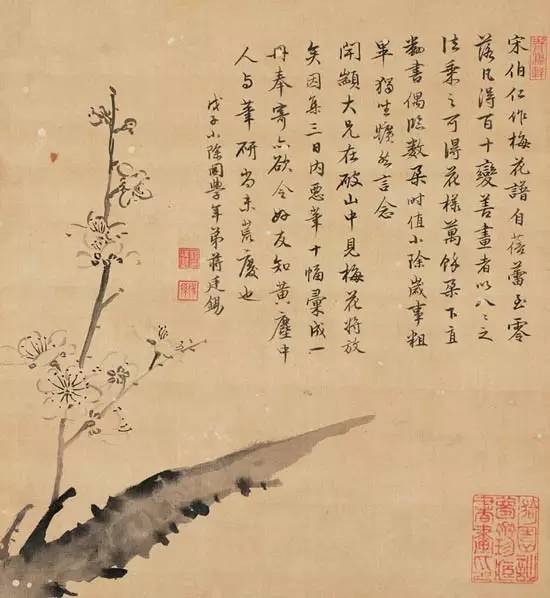 宋伯仁作梅花譜自蓓蕾至零
落凡得百十變善畫者以八八之
法乘之可得花樣萬餘朵下直
勘書偶臨數朵時值小除歲事粗
畢獨坐曠然言念
開顓大兄在破山中見梅花將放
矣因集三日內惡筆十幅彙成一
冊奉寄亦欲令好友知黃塵中
人与筆研尚未荒廢也
戊子小除同學年弟蔣廷錫